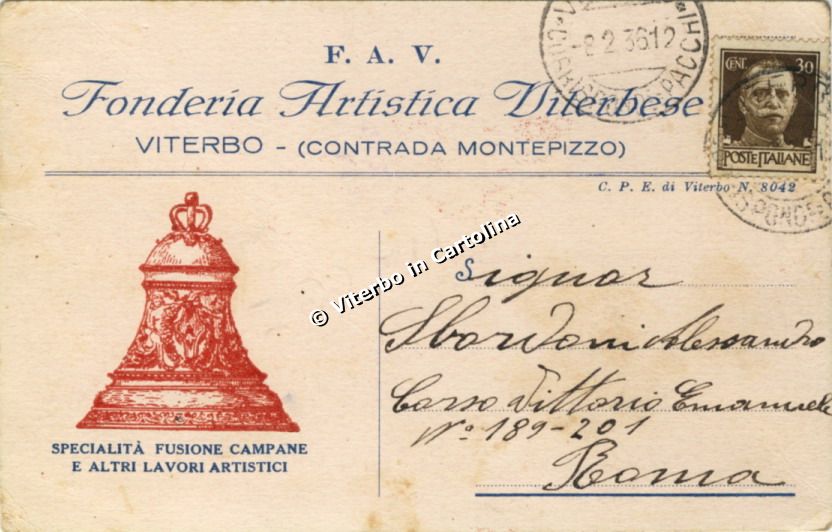 F. A. V.
Fonderia Artistica Viterbese
VITERBO - (CONTRADA MONTEPIZZO)
C. P. E. di Viterbo N. 8042
-8.2.36.12
PACCHI
CENT. 30
POSTE ITALIANE
© Viterbo in Cartolina
Signor
Sbardoni Alessandro
Corso Vittorio Emanuele
N.º 189-201
Roma
SPECIALITÀ FUSIONE CAMPANE
E ALTRI LAVORI ARTISTICI